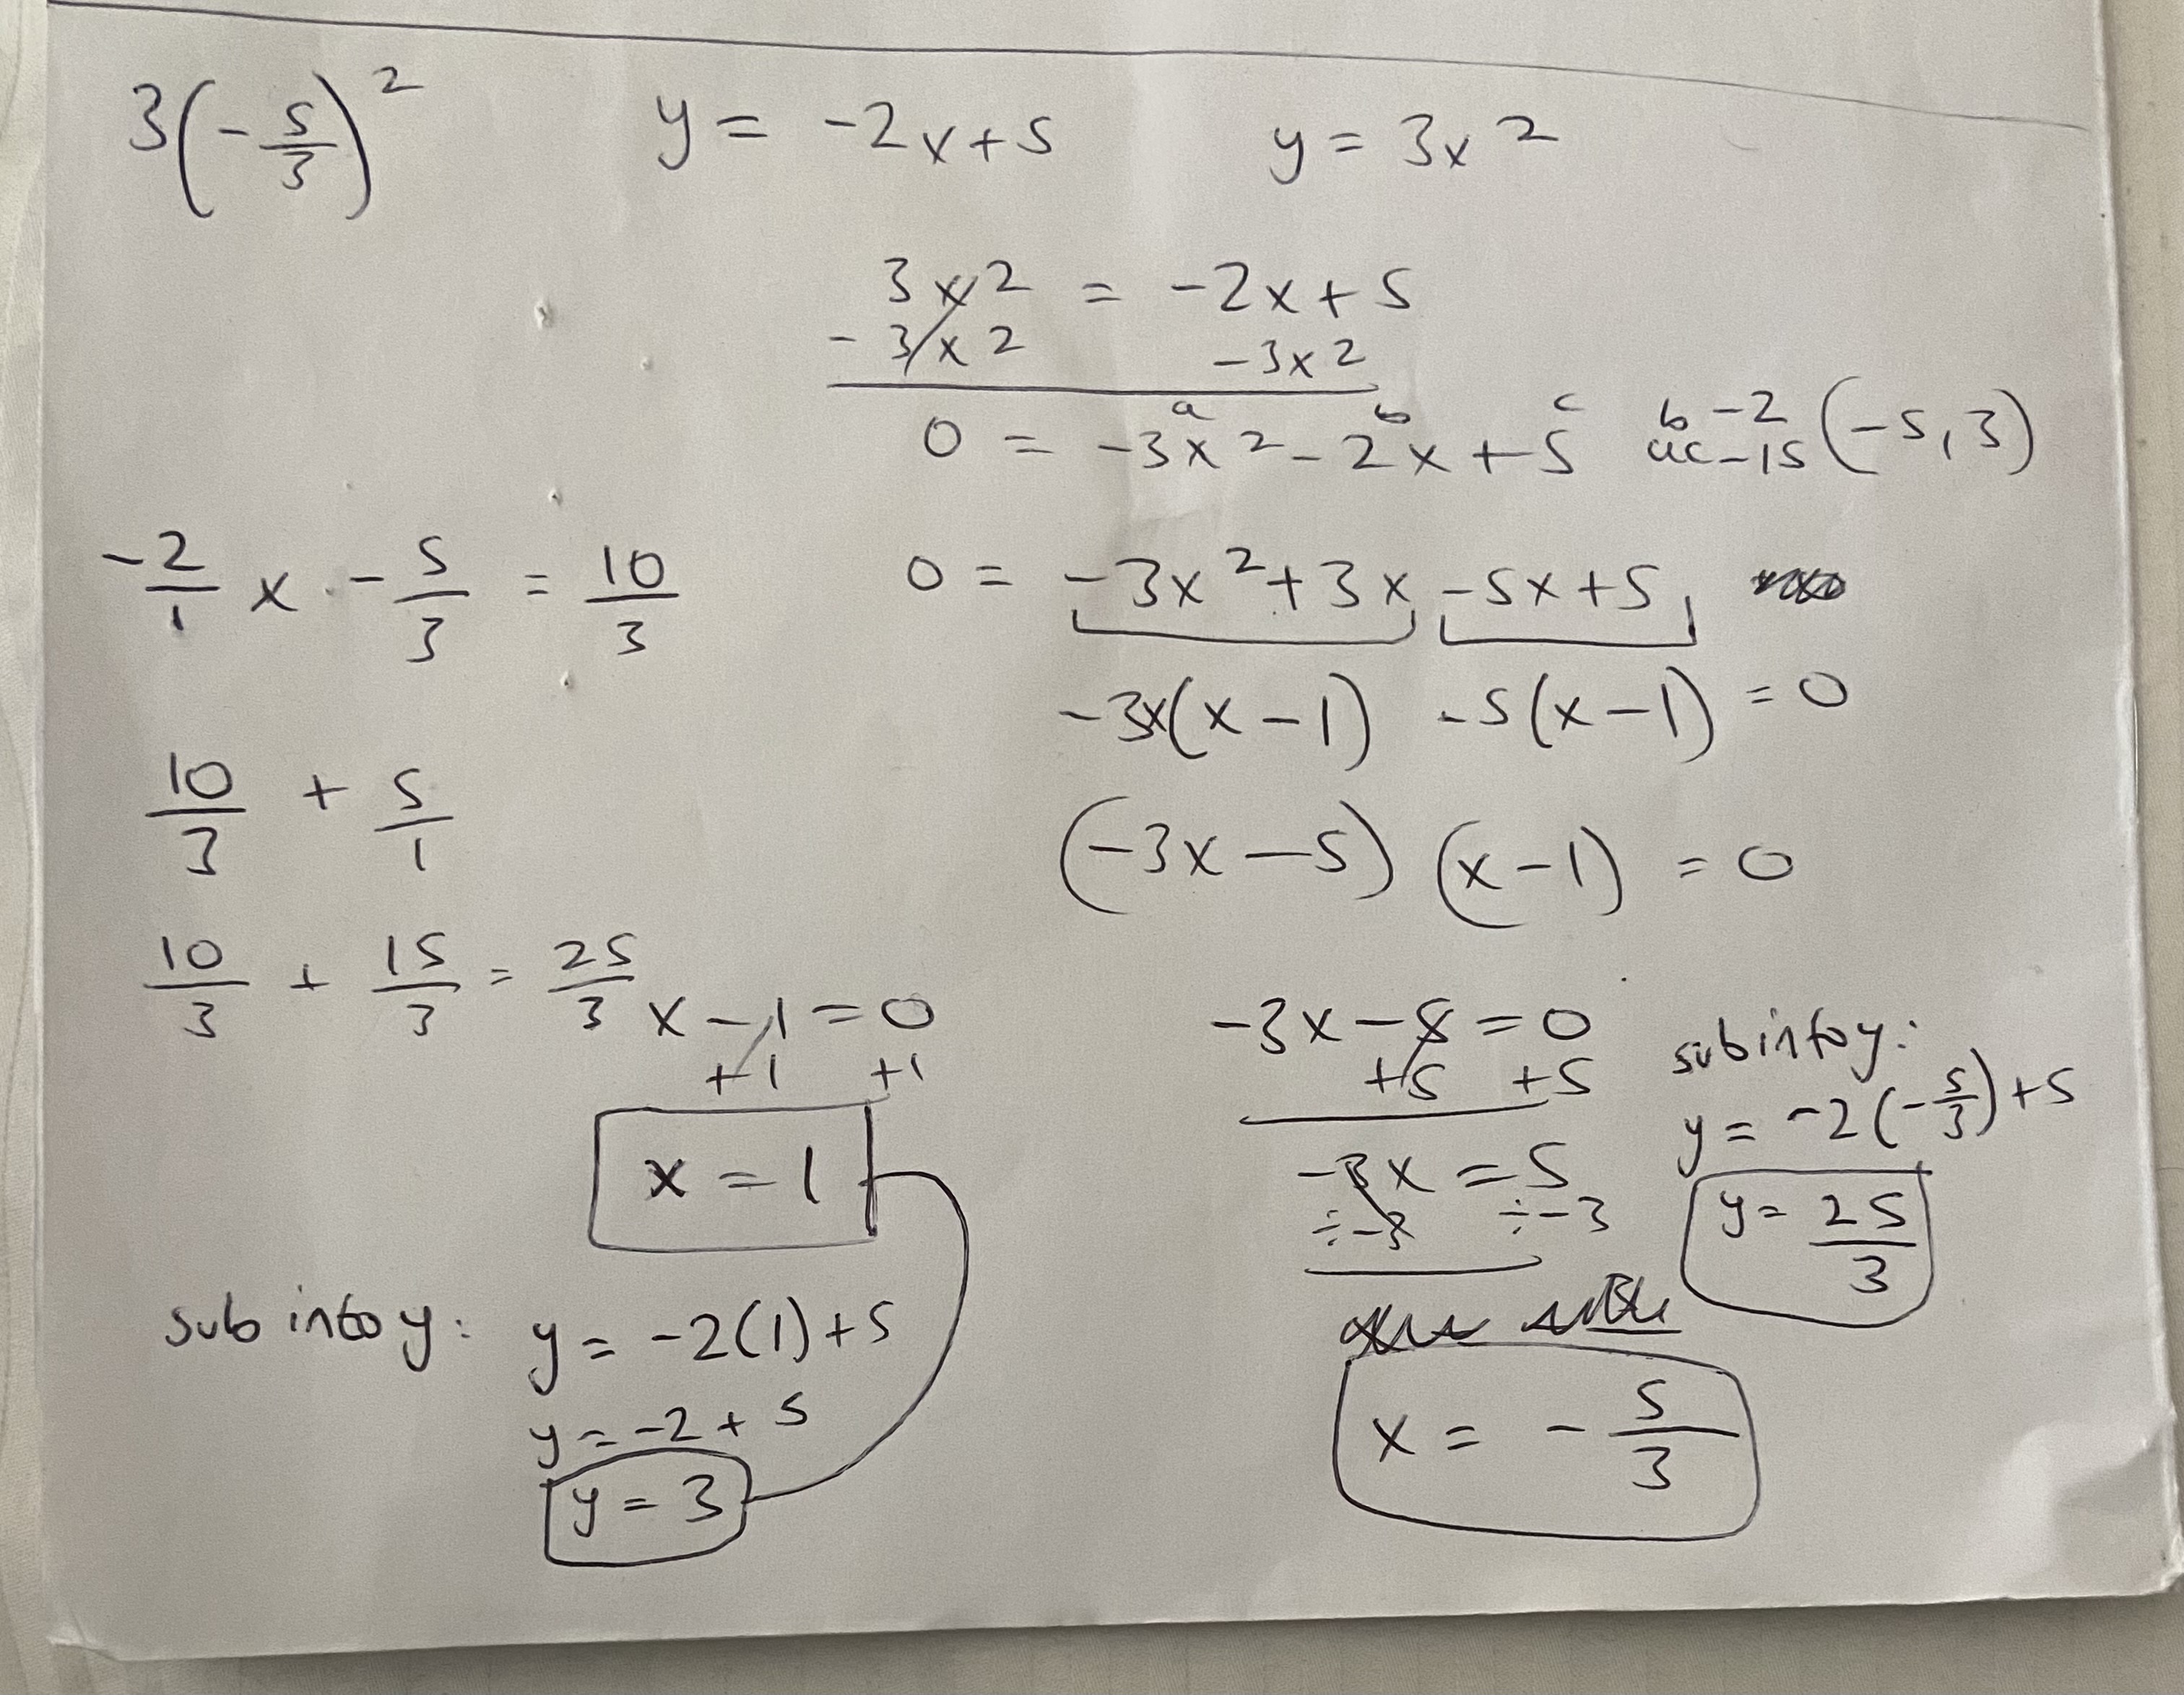 3(-5/3)² y = -2x+5 y = 3x²
3x² = -2x+5
-3x² -3x²
a b c
0 = -3x²-2x+5 b -2 ac -15 (-5,3)
-2/1 x -5/3 = 10/3
0 = -3x²+3x -5x+5
-3x(x-1) -5(x-1) = 0
10/3 + 5/1
(-3x-5)(x-1) = 0
10/3 + 15/3 = 25/3
x-1=0
+1 +1
x = 1
sub into y: y = -2(1)+5
y = -2+5
y = 3
-3x-5=0
+5 +5
-3x = 5
÷-3 ÷-3
x = -5/3
sub into y:
y = -2(-5/3)+5
y = 25/3